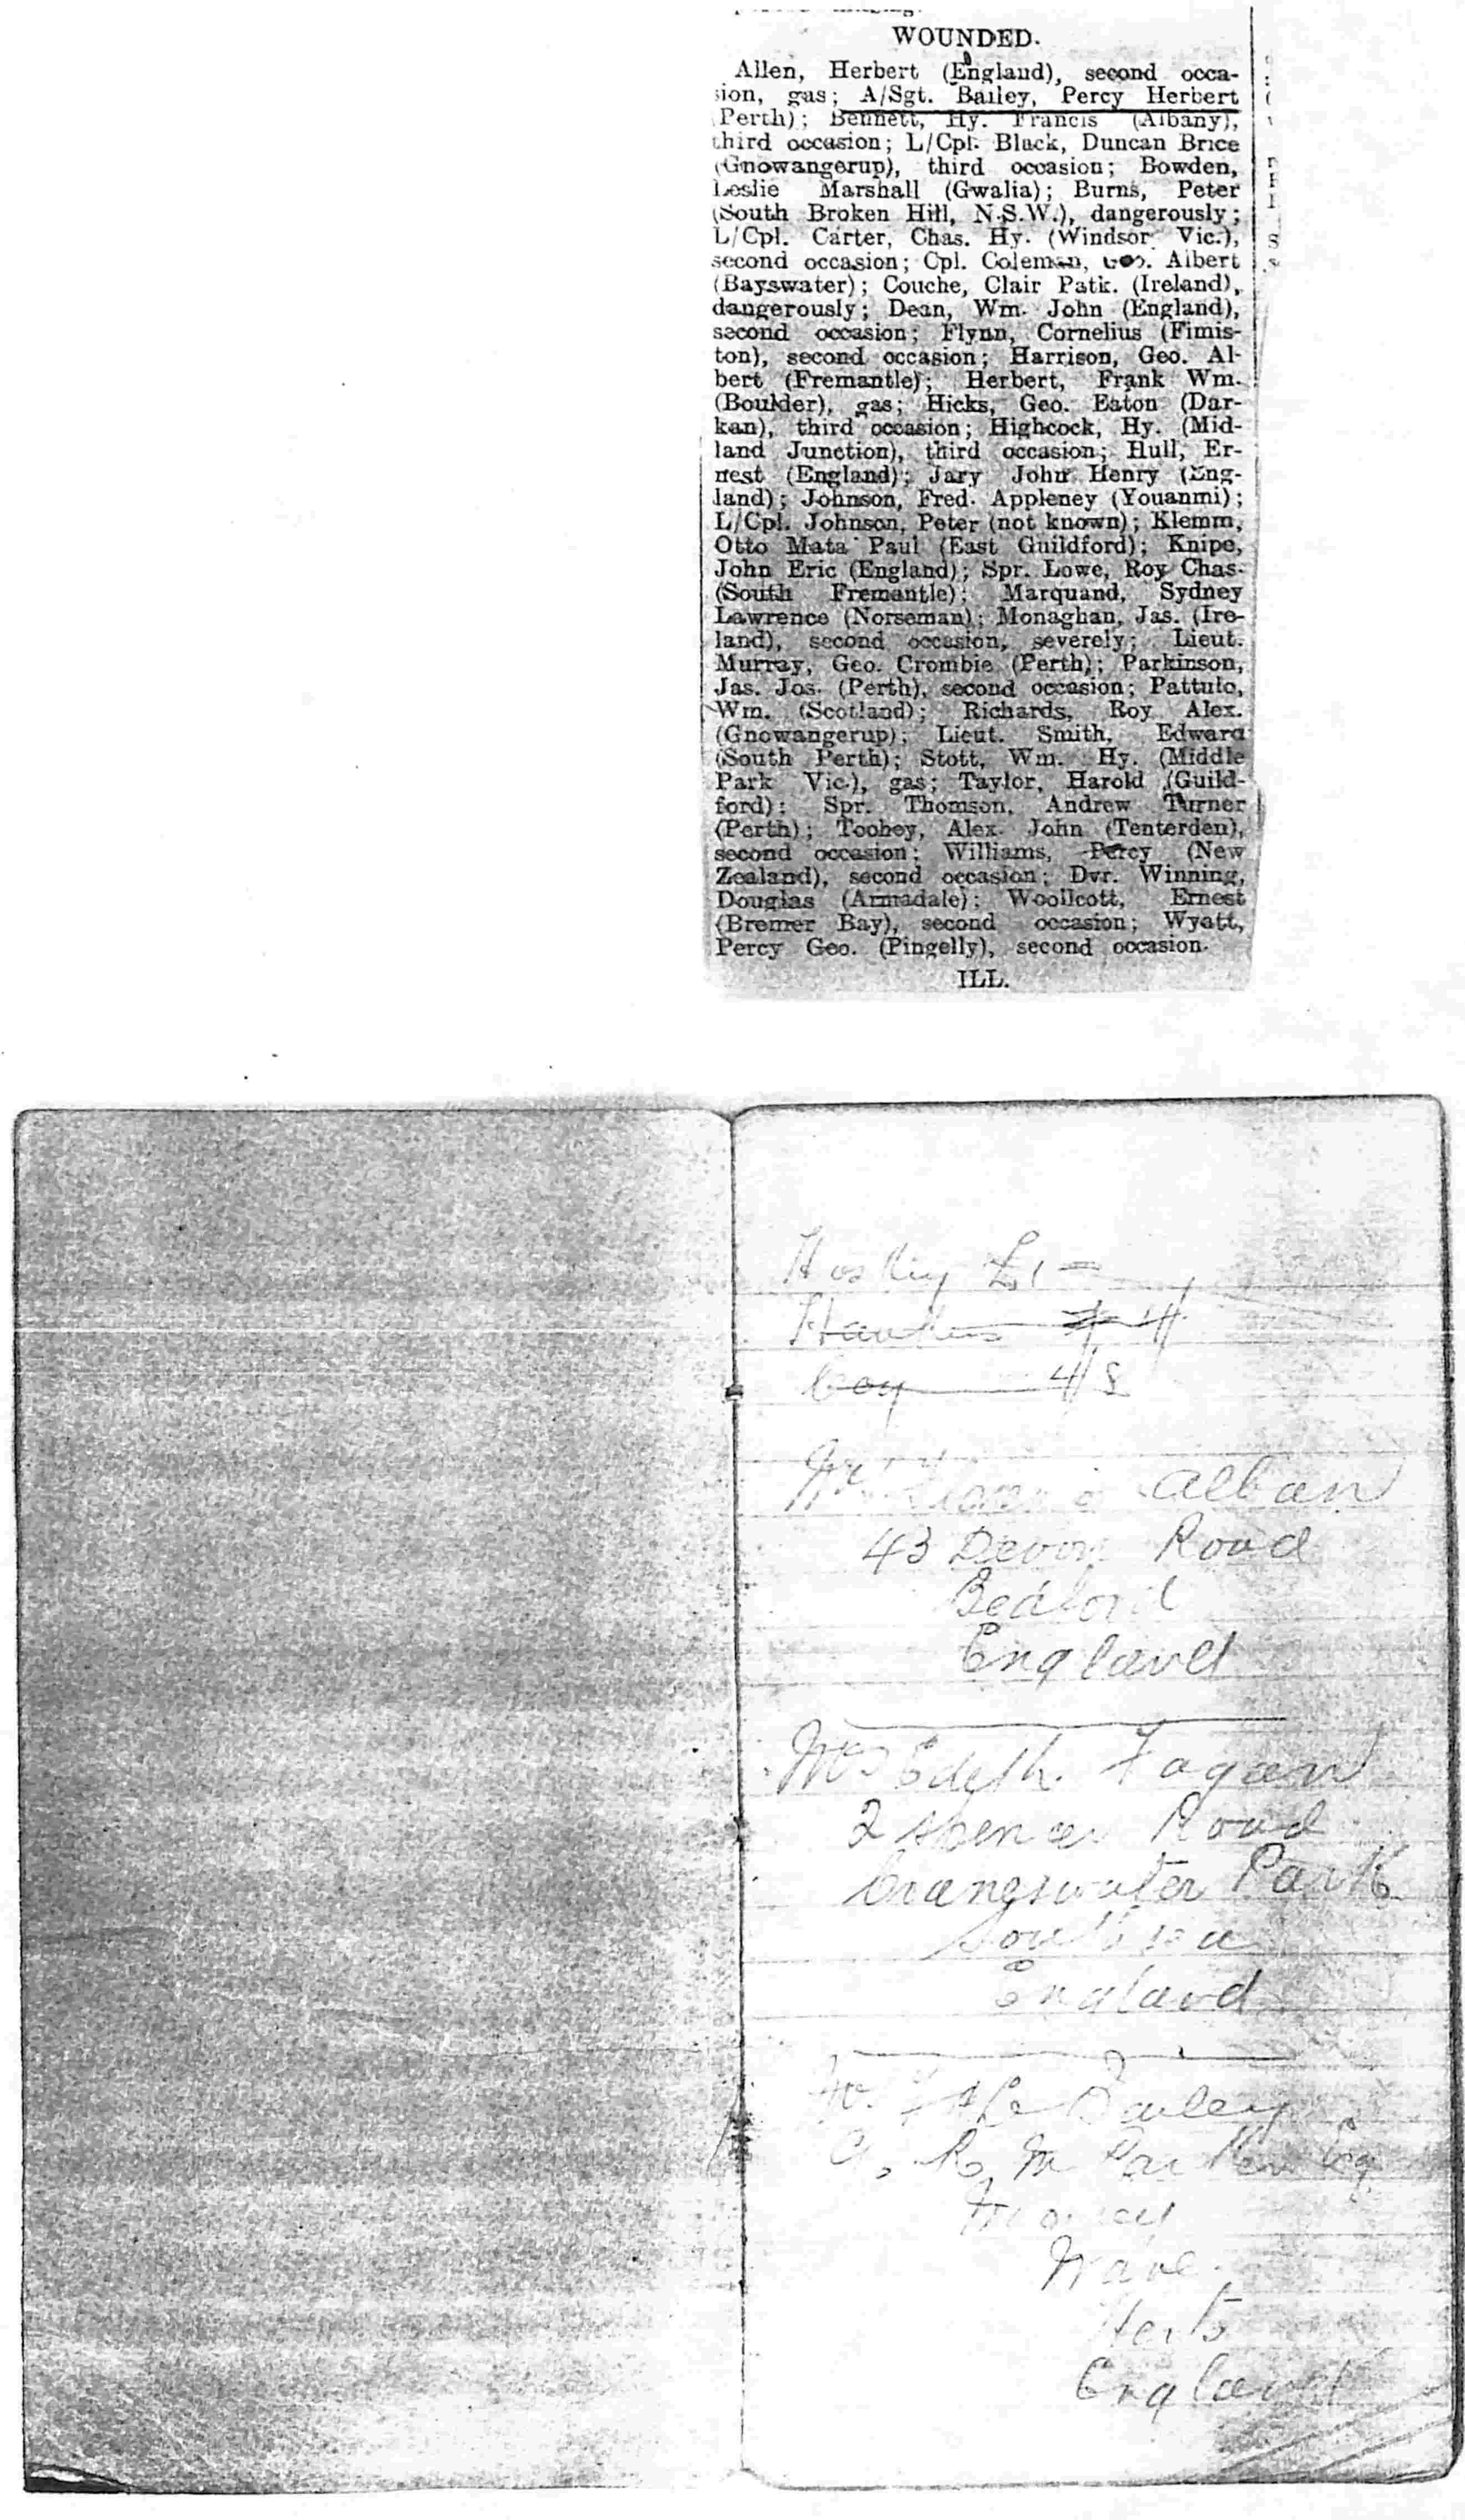 WOUNDED.
Allen, Herbert (England), second occa-
sion, gas; A/Sgt. Bailey, Percy Herbert
(Perth); Bennett, Hy. Francis (Albany),
third occasion; L/Cpl. Black, Duncan Brice
(Gnowangerup), third occasion; Bowden,
Leslie Marshall (Gwalia); Burns, Peter
(South Broken Hill, N.S.W.), dangerously;
L/Cpl. Carter, Chas. Hy. (Windsor Vic.),
second occasion; Cpl. Coleman, Geo. Albert
(Bayswater); Couche, Clair Patk. (Ireland),
dangerously; Dean, Wm. John (England),
second occasion; Flynn, Cornelius (Fimis-
ton), second occasion; Harrison, Geo. Al-
bert (Fremantle); Herbert, Frank Wm.
(Boulder), gas; Hicks, Geo. Eaton (Dar-
kan), third occasion; Highcock, Hy. (Mid-
land Junction), third occasion; Hull, Er-
nest (England); Jary John Henry (Eng-
land); Johnson, Fred. Appleney (Youanmi);
L/Cpl. Johnson, Peter (not known); Klemm,
Otto Mata Paul (East Guildford); Knipe,
John Eric (England); Spr. Lowe, Roy Chas.
(South Fremantle); Marquand, Sydney
Lawrence (Norseman); Monaghan, Jas. (Ire-
land), second occasion, severely; Lieut.
Murray, Geo. Crombie (Perth); Parkinson,
Jas. Jos. (Perth), second occasion; Pattulo,
Wm. (Scotland); Richards, Roy Alex.
(Gnowangerup); Lieut. Smith, Edward
(South Perth); Stott, Wm. Hy. (Middle
Park Vic.), gas; Taylor, Harold (Guild-
ford); Spr. Thomson, Andrew Turner
(Perth); Toohey, Alex. John (Tenterden),
second occasion; Williams, Percy (New
Zealand), second occasion; Dvr. Winning,
Douglas (Armadale); Woollcott, Ernest
(Bremer Bay), second occasion; Wyatt,
Percy Geo. (Pingelly), second occasion.
ILL.
£1 =
Coy 4/8
Alban
43 Devon Road
Bedford
England
Mrs Edyth Fagan
2 Spencer Road
Craneswater Park
Southsea
England
Bailey
Ware
Herts
England